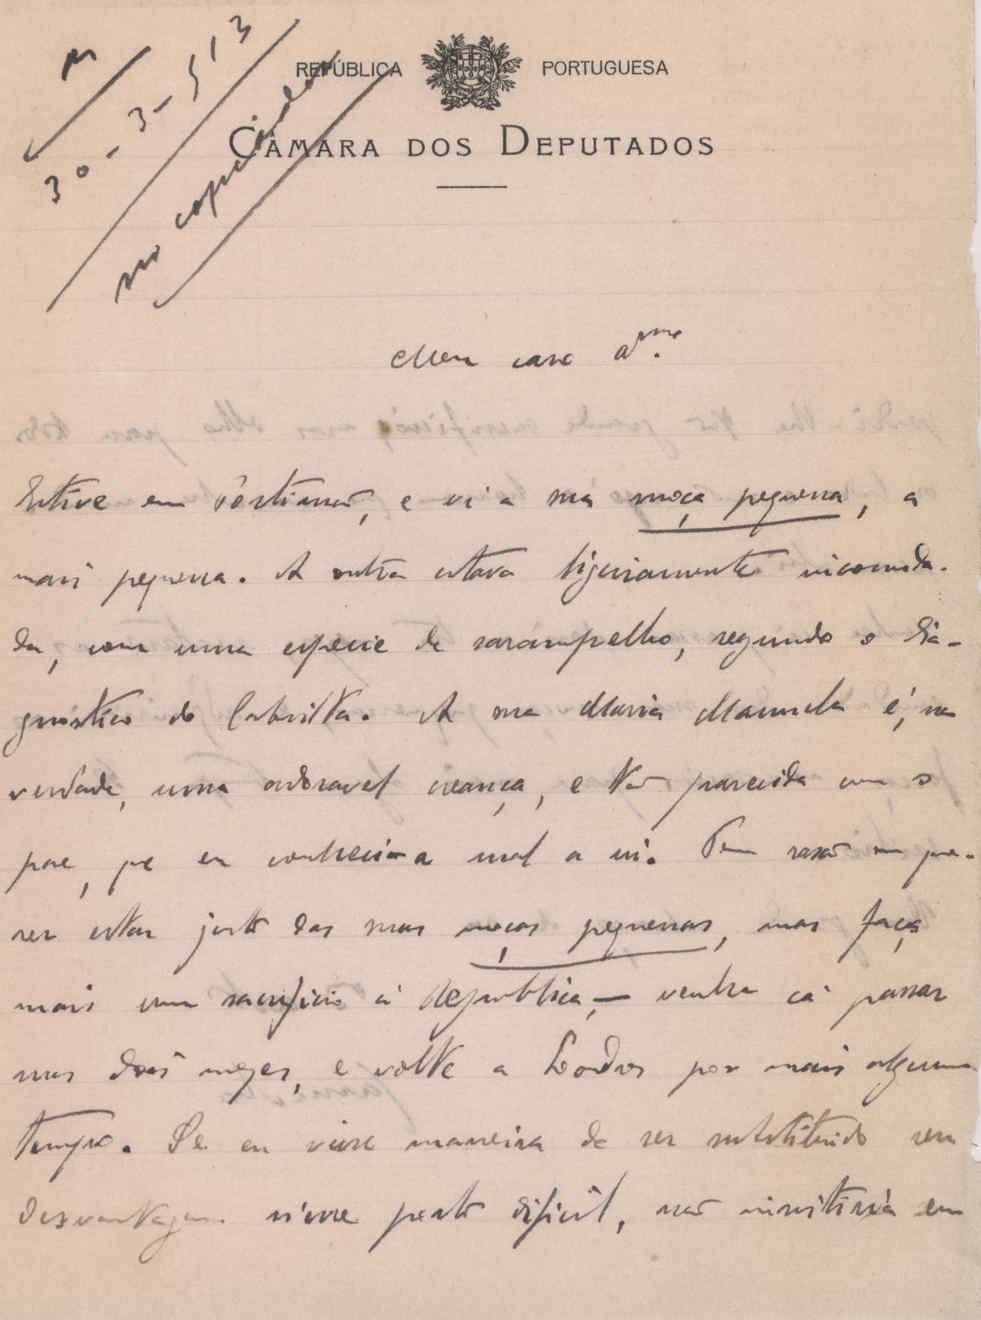 30-3-913
no copiador
REPÚBLICA PORTUGUESA
CÂMARA DOS DEPUTADOS
Meu caro am.º
Estive em Portimão, e vi a sua moça pequena, a
mais pequena. A outra estava ligeiramente incomoda-
da, com uma especie de sarampelho, segundo o dia-
gnostico do Cabrilla. A sua Maria Manuela é, na
verdade, uma adoravel creança, e tão parecida com o
pae, que eu conheci-a mal a vi. Tem rasão em que-
rer estar junto das suas moças pequenas, mas faça
mais um sacrificio á Republica, — venha cá passar
uns dois mezes, e volte a Londres por mais algum
tempo. Se eu visse maneira de ser substituido sem
desvantagem n'esse posto dificil, não insistiria em